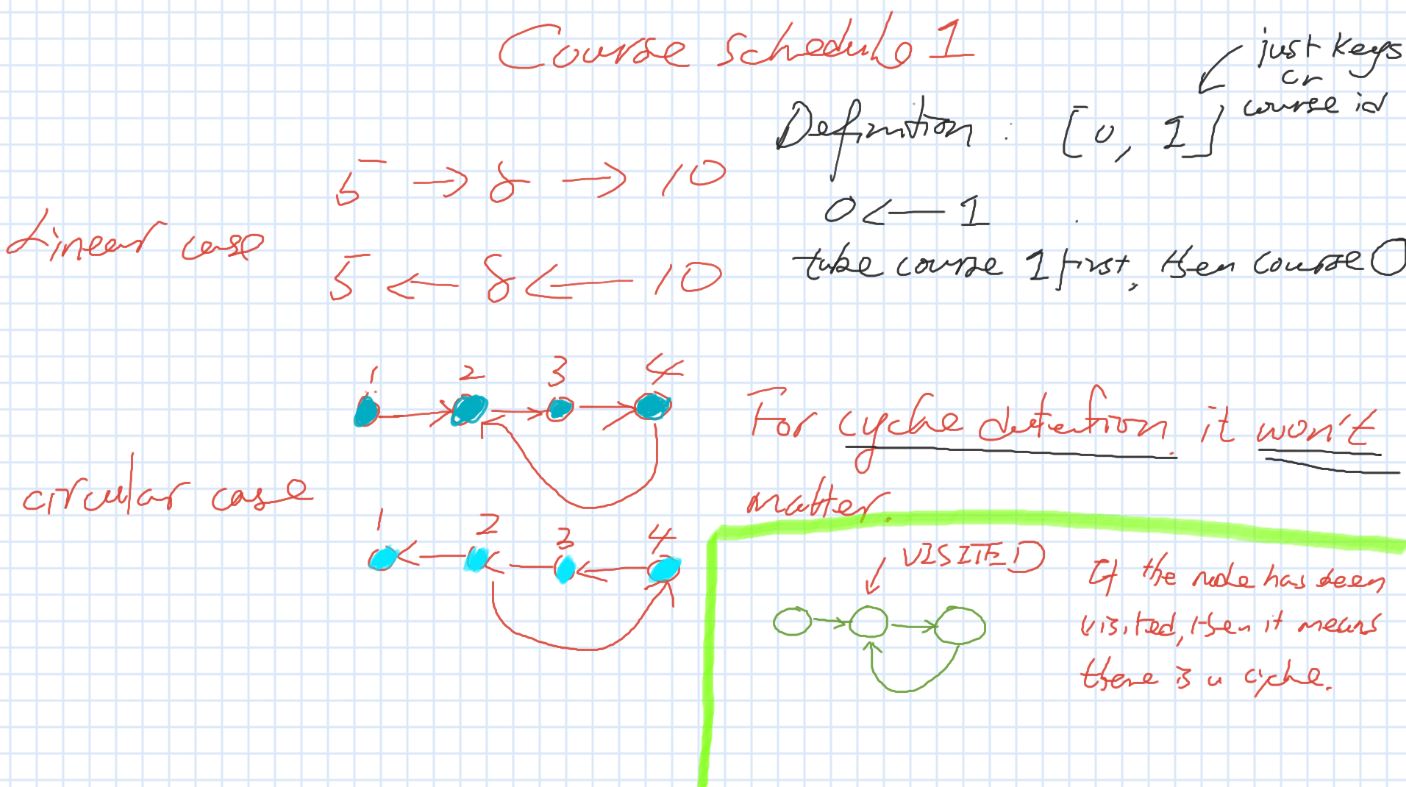 Course schedule 1
just keys
or
course id
Definition : [0, 1]
0 ← 1
take course 1 first, then course 0
Linear case
5 → 8 → 10
5 ← 8 ← 10
1 2 3 4
circular case
1 2 3 4
For cycle detention it won't
matter.
VISITED
If the node has been
visited, then it means
there is a cycle.